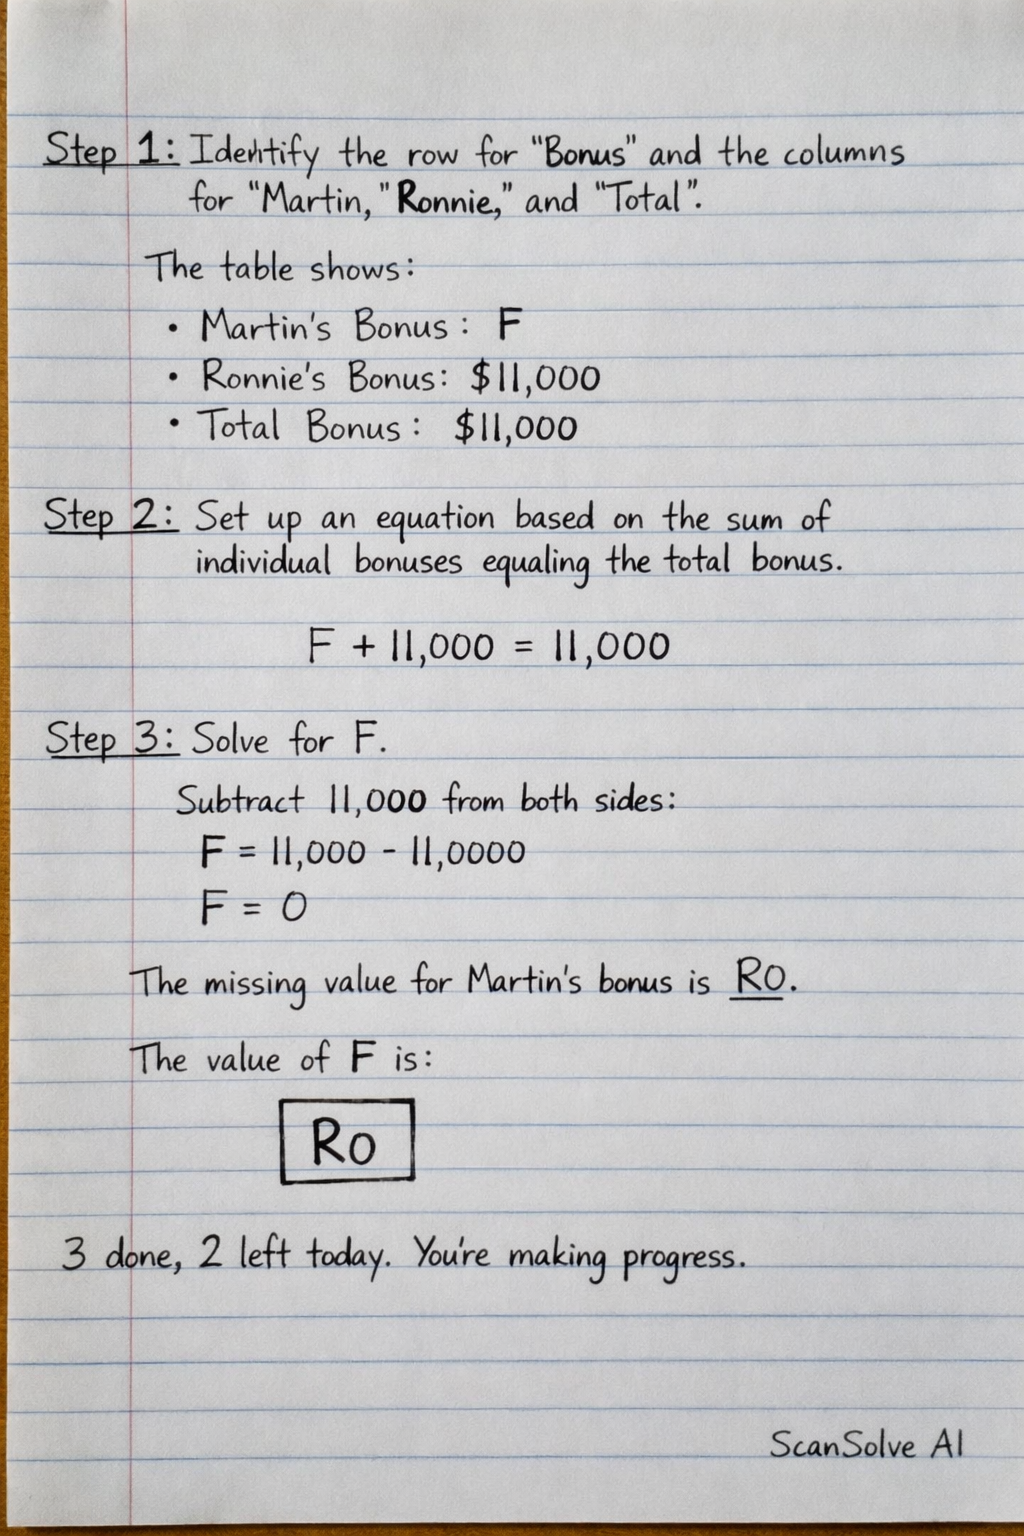 Step 1: Identify the row for "Bonus" and the columns
for "Martin, "Ronnie," and "Total".
The table shows:
• Martin's Bonus: F
• Ronnie's Bonus: $11,000
• Total Bonus: $11,000
Step 2: Set up an equation based on the sum of
individual bonuses equaling the total bonus.
F + 11,000 = 11,000
Step 3: Solve for F.
Subtract 11,000 from both sides:
F = 11,000 - 11,0000
F = 0
The missing value for Martin's bonus is R0.
The value of F is:
R0
3 done, 2 left today. You're making progress.
ScanSolve AI